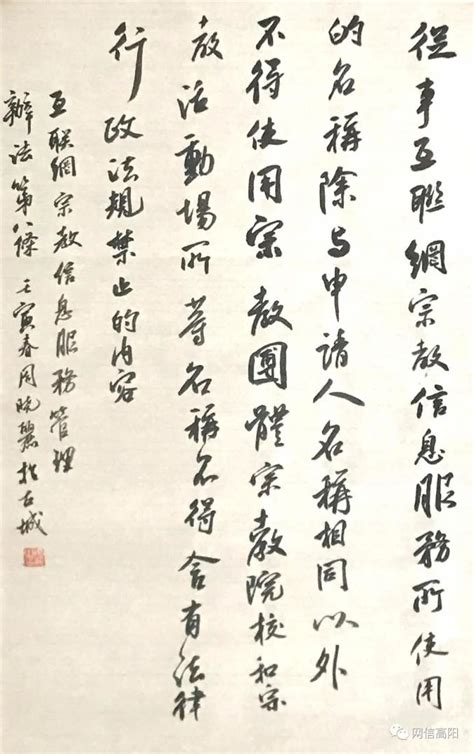 從事互聯網宗教信息服務所使用
的名稱除与申請人名稱相同以外
不得使用宗教團體宗教院校和宗
教活動場所等名稱不得含有法律
行政法規禁止的内容
互联網宗教信息服務管理
辦法第八條 壬寅春周 於古城
网信高阳